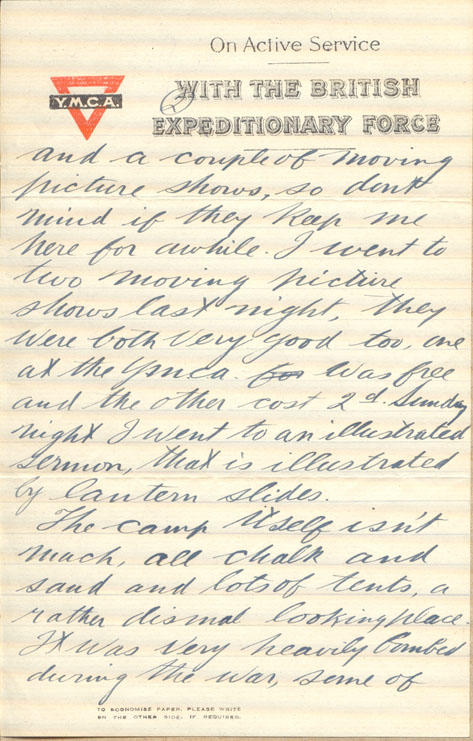 On Active Service
WITH THE BRITISH
EXPEDITIONARY FORCE
Y.M.C.A.
2
and a couple of moving
picture shows, so dont
mind if they keep me
here for awhile. I went to
two moving picture
shows last night, they
were both very good too, one
at the Ymca. was free
and the other cost 2d. Sunday
night I went to an illustrated
sermon, that is illustrated
by lantern slides.
The camp itself isn't
much, all chalk and
sand and lots of tents, a
rather dismal looking place.
It was very heavily bombed
during the war, some of
TO ECONOMISE PAPER, PLEASE WRITE
ON THE OTHER SIDE, IF REQUIRED.